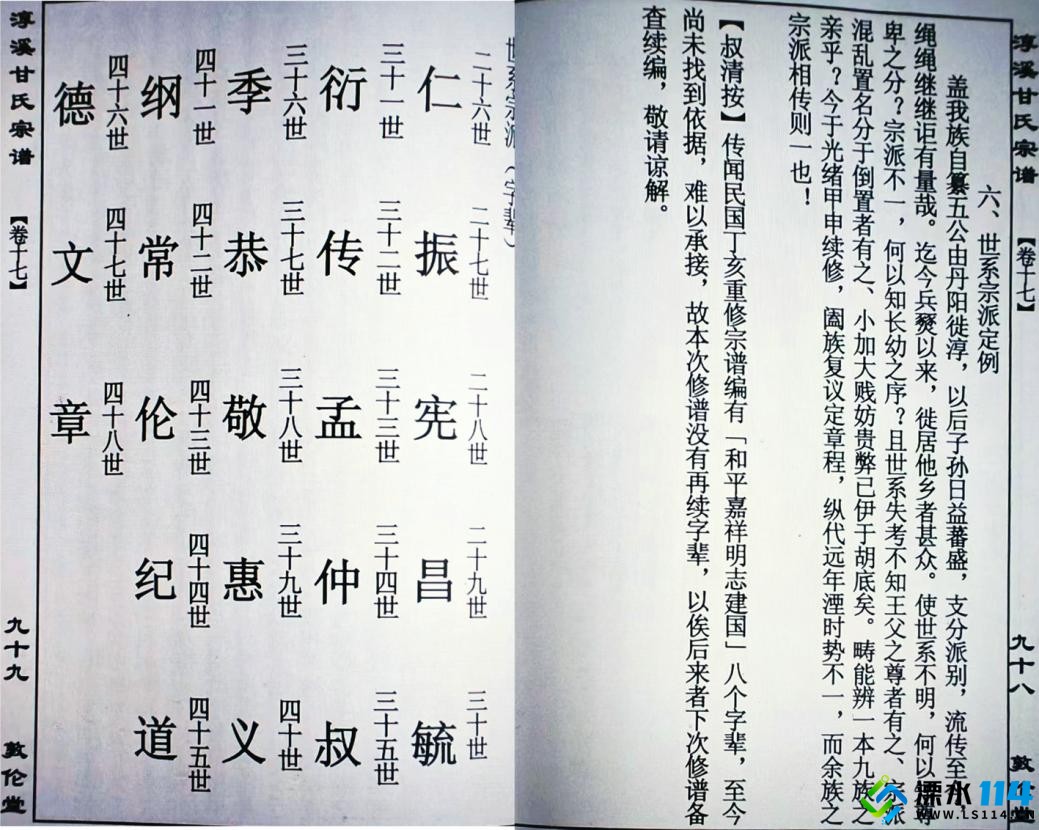 淳溪甘氏宗谱 【卷十七】 九十八
六、世系宗派定例
盖我族自纂五公由丹阳徙淳，以后子孙日益蕃盛，支分派别，流传至今，
绳绳继继讵有量哉。迄今兵燹以来，徙居他乡者甚众。使世系不明，何以知尊
卑之分？宗派不一，何以知长幼之序？且世系失考不知王父之尊者有之、宗派
混乱置名分于倒置者有之、小加大贱妨贵弊己伊于胡底矣。畴能辨一本九族之
亲乎？今于光绪甲申续修，阖族复议定章程，纵代远年湮时势不一，而余族之
宗派相传则一也！
【叔清按】传闻民国丁亥重修宗谱编有「和平嘉祥明志建国」八个字辈，至今
尚未找到依据，难以承接，故本次修谱没有再续字辈，以俟后来者下次修谱备
查续编，敬请谅解。
世系宗派（字辈）
二十六世 二十七世 二十八世 二十九世 三十世
仁 振 宪 昌 毓
三十一世 三十二世 三十三世 三十四世 三十五世
衍 传 孟 仲 叔
三十六世 三十七世 三十八世 三十九世 四十世
季 恭 敬 惠 义
四十一世 四十二世 四十三世 四十四世 四十五世
纲 常 伦 纪 道
四十六世 四十七世 四十八世
德 文 章
淳溪甘氏宗谱 【卷十七】 九十九 敦伦堂
溧水114
www.LS114.cn